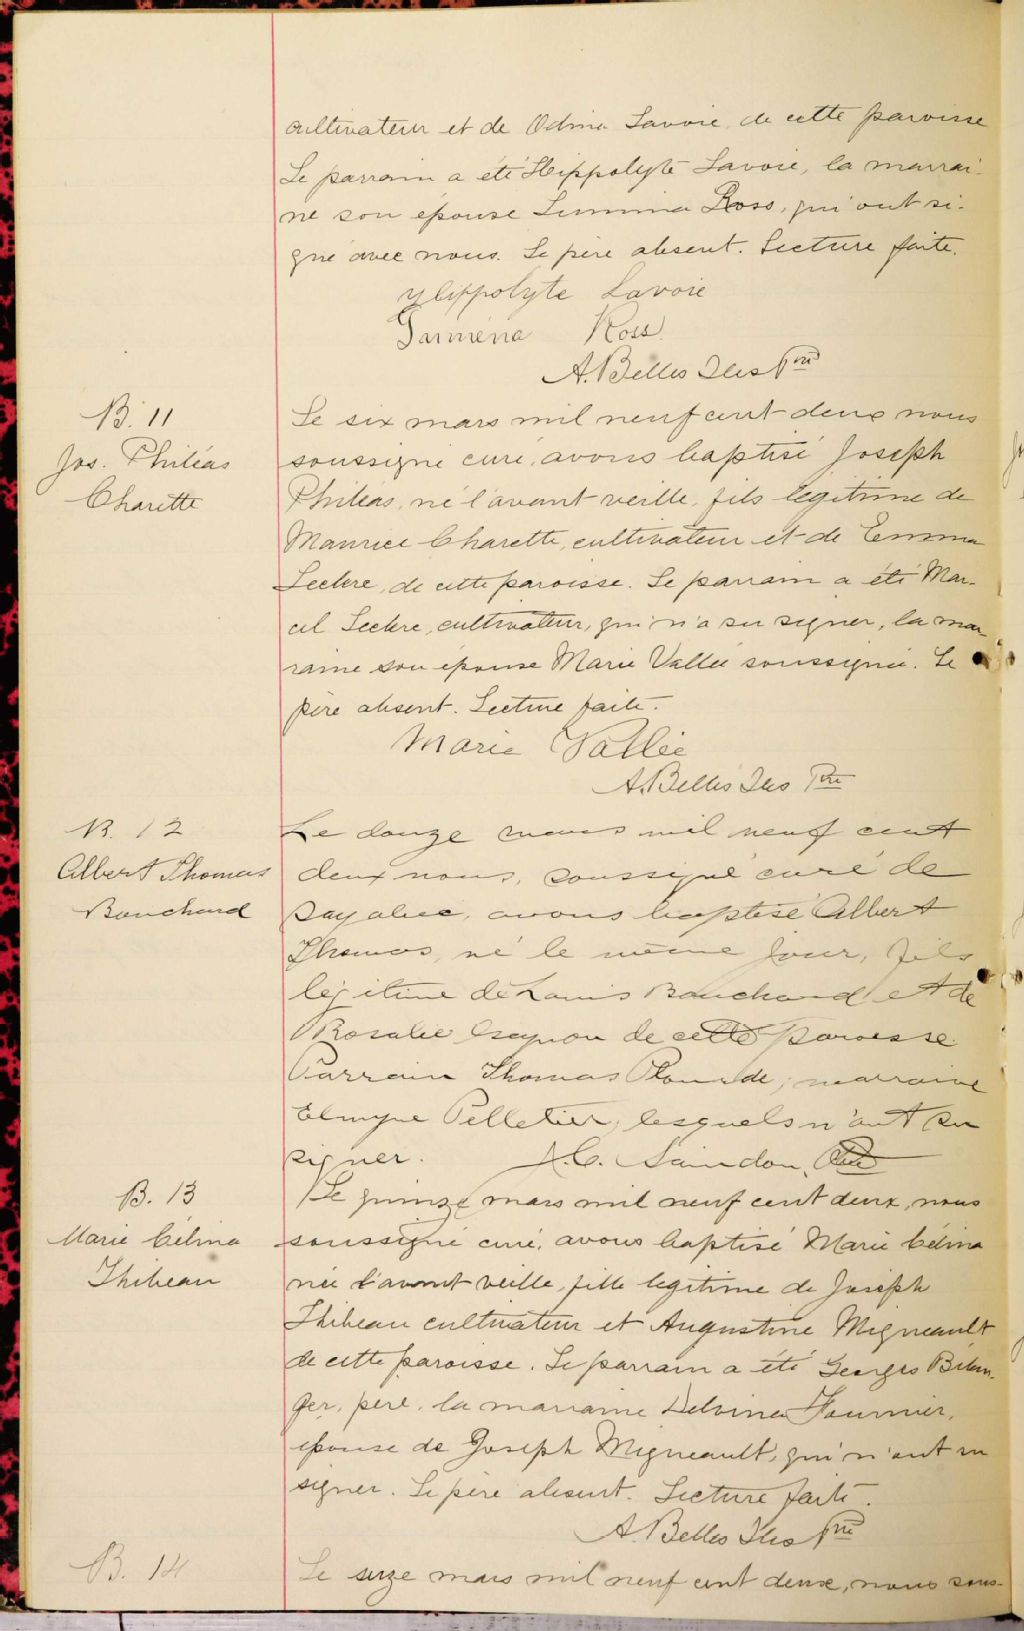 cultivateur et de Odina Lavoie, de cette paroisse
Le parrain a été Hippolyte Lavoie, la marrai-
ne son épouse Luminia Ross, qui ont si-
gné avec nous. Le père absent. Lecture faite.
Hippolyte Lavoie
Ross
A. Belles Iles Ptre
B. 11
Jos. Philéas
Charette
Le six mars mil neuf cent deux nous
soussigné curé, avons baptisé Joseph
Philéas, né l'avant veille, fils légitime de
Maurice Charette, cultivateur et de Emma
Leclere, de cette paroisse. Le parrain a été Mar-
cel Leclere, cultivateur, qui n'a su signer, la mar
raine son épouse Marie Vallée soussignée. Le
père absent. Lecture faite.
Marie Vallée
A. Belles Iles Ptre
B. 12
Albert Thomas
Bouchard
Le douze mars mil neuf cent
deux nous, soussigné curé de
Sayabec, avons baptisé Albert
Thomas, né le même jour, fils
légitime de Louis Bouchard et de
Rosalie Gagnon de cette paroisse.
Parrain Thomas Plourde; marraine
Elmyre Pelletier, lesquels n'ont su
signer. J. C. Saindon, Ptre
B. 13
Marie Célina
Thibeau
Le quinze mars mil neuf cent deux, nous
soussigné curé, avons baptisé Marie Célina
née l'avant veille, fille légitime de Joseph
Thibeau cultivateur et Augustine Migneault
de cette paroisse. Le parrain a été Georges Bélan-
ger, père, la marraine Delvina Fournier,
épouse de Joseph Migneault, qui n'ont su
signer. Le père absent. Lecture faite.
A. Belles Iles Ptre
B. 14
Le seize mars mil neuf cent deux, nous sous-